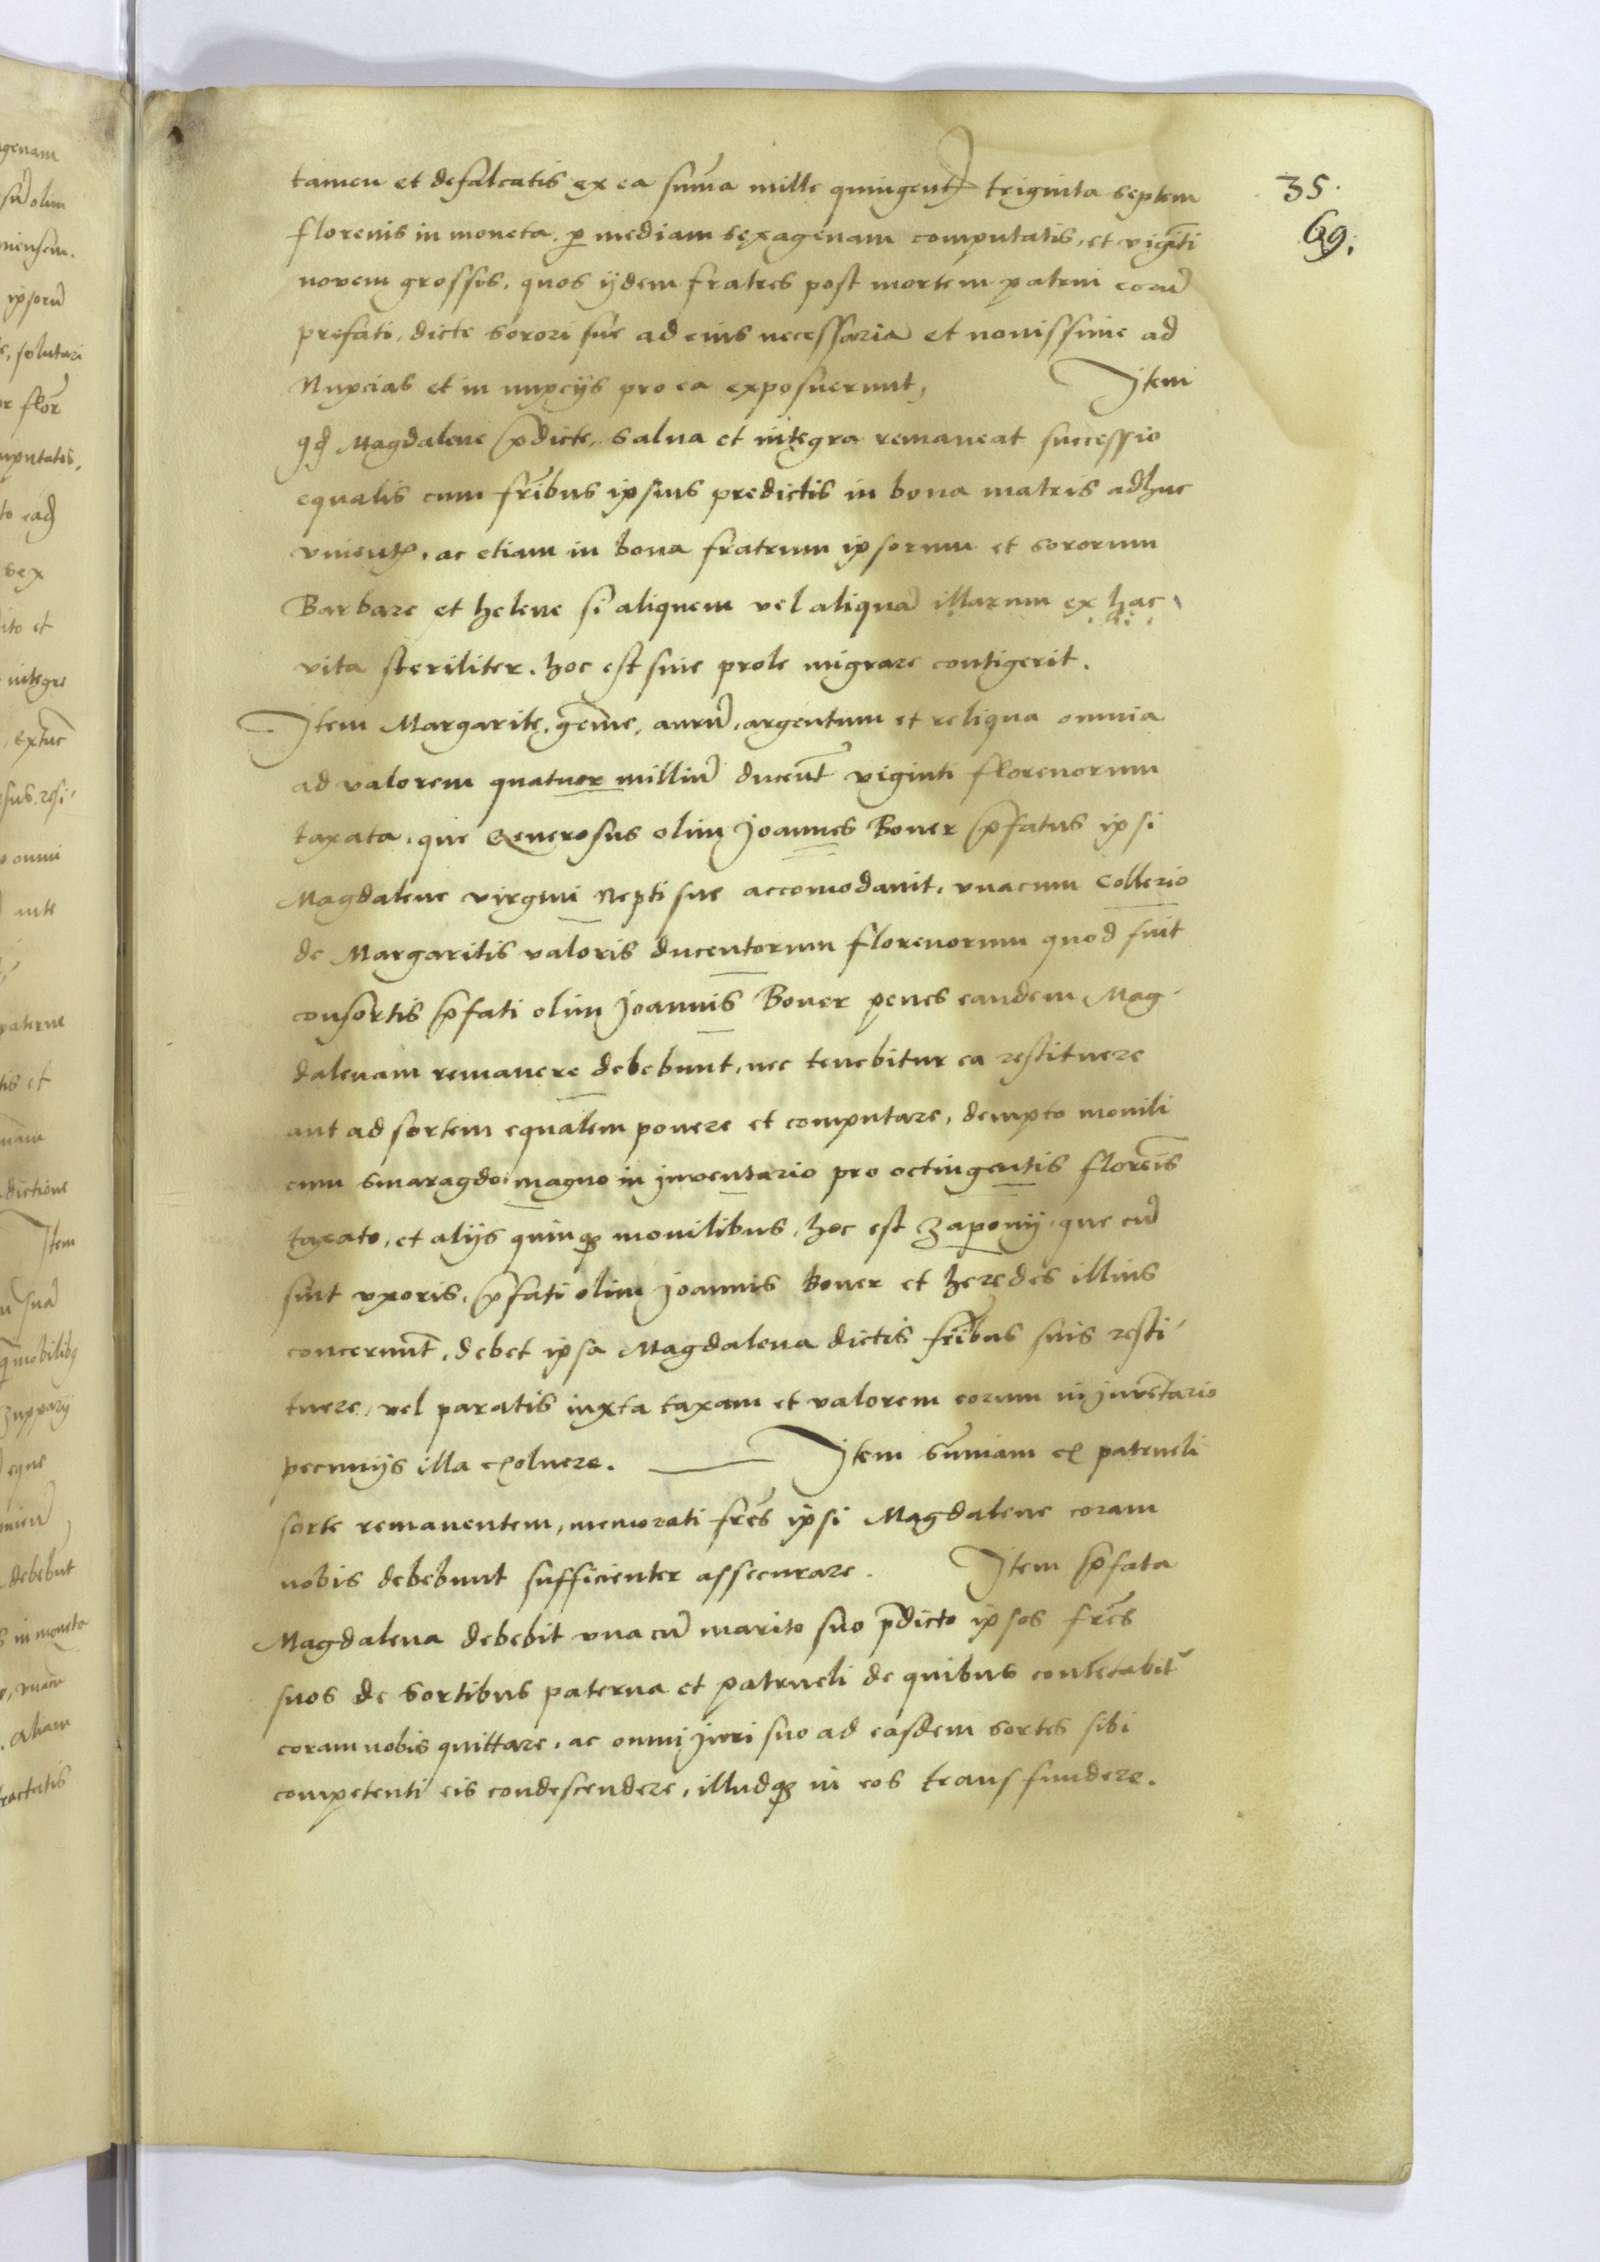 tamen et defalcatis ex ea suma mille quingent triginta septem
florenis in moneta, p mediam sexagenam computatis, et viginti
novem grossis, quos ijdem fratres post mortem patrui eorū
prefati, dicte sorori sue ad eius necessaria et novissime ad
Nupcias et in nupcijs pro ea exposuerunt, Item
qd Magdalene pdicte, salua et integra remaneat successio
equalis cum frībus ipsius predictis in bona matris adhuc
viuentis, ac etiam in bona fratrum ipsorum et sororum
Barbare et helene si aliquem vel aliquā illarum ex hac
vita steriliter, hoc est sine prole migrare contigerit.
Item Margarite, gēme, aurū, argentum et reliqua omnia
ad valorem quatuor milliū ducent viginti florenorum
taxata, que Generosus olim Joannes Boner pfatus ipsi
Magdalene virgini nepti sue accomodauit, vnacum Collerio
de Margaritis valoris ducentorum florenorum quod fuit
consortis pfati olim Joannis Boner penes eandem Mag-
dalenam remanere debebunt, nec tenebitur ea restituere
aut ad sortem equalem ponere et computare, dempto monili
cum smaragdo magno in inventario pro octingentis florenis
taxato, et alijs quinq monilibus, hoc est zaponij, que cū
sint vxoris, pfati olim Joannis Boner et heredes illius
concernunt, debet ipsa Magdalena dictis frībus suis resti-
tuere, vel paratis iuxta taxam et valorem eorum in Inventario
pecunijs illa exoluere. Item sumam ex patrueli
sorte remanentem, memorati frēs ipsi Magdalene coram
nobis debebunt sufficienter assecurare. Item pfata
Magdalena debebit vna cū marito suo pdicto ipsos frēs
suos de sortibus paterna et patrueli de quibus contētabit
coram nobis quittare, ac omni Juri suo ad easdem sortes sibi
competenti eis condescendere, illudq in eos transfundere.
35.
69.